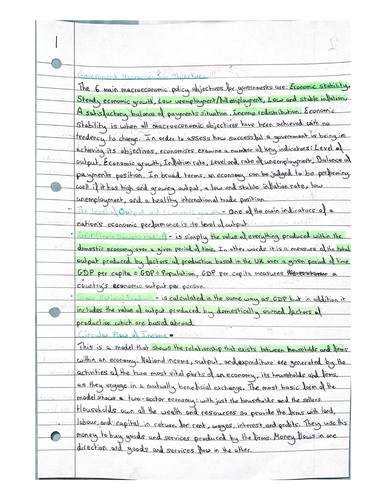 1
Government Macroeconomic Objectives
The 6 main macroeconomic policy objectives for governments are: Economic stability,
Steady economic growth, Low unemployment/full employment, Low and stable inflation,
A satisfactory balance of payments situation, Income redistribution. Economic
stability is when all macroeconomic objectives have been achieved with no
tendency to change. In order to assess how successful a government is being in
achieving its objectives, economists examine a number of key indicators: Level of
output, Economic growth, Inflation rate, Level and rate of unemployment, Balance of
payments position. In broad terms, an economy can be judged to be performing
well if it has high and growing output, a low and stable inflation rate, low
unemployment, and a healthy international trade position.
The level of Output and Economic growth - One of the main indicators of a
nation's economic performance is its level of output.
- is simply the value of everything produced within the
domestic economy over a given period of time. In other words it is a measure of the total
output produced by factors of production based in the UK over a given period of time
GDP per capita = GDP ÷ Population, GDP per capita measures
a country's economic output per person.
- is calculated in the same way as GDP but in addition it
includes the value of output produced by domestically owned factors of
production which are based abroad.
Circular Flow of Income
This is a model that shows the relationship that exists between households and firms
within an economy. National income, output, and expenditure are generated by the
activities of the two most vital parts of an economy, its households and firms,
as they engage in a mutually beneficial exchange. The most basic form of the
model shows a two-sector economy: with just the households and the sellers.
Households own all the wealth and resources so provide the firms with land,
labour, and capital in return for rent, wages, interest and profits. They use this
money to buy goods and services produced by the firms. Money flows in one
direction and goods and services flow in the other.